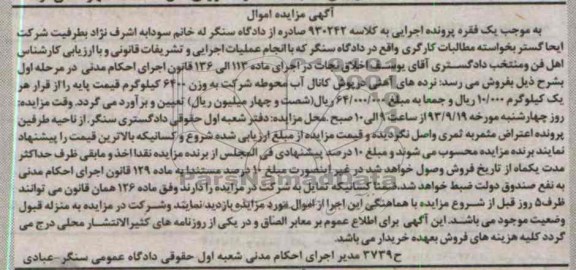 آگهی مزایده اموال
به موجب یک فقره پرونده اجرایی به کلاسه ۹۳۰۲۴۲ صادره از دادگاه سنگر له خانم سودابه اشرف نژاد بطرفیت شرکت
ایحا گستر بخواسته مطالبات کارگری واقع در دادگاه سنگر که با انجام عملیات اجرایی و تشریفات قانونی و با ارزیابی کارشناس
اهل فن و منتخب دادگستری آقای یوسف اخلاق نجات در اجرای ماده ۱۱۳ الی ۱۳۶ قانون اجرای احکام مدنی در مرحله اول
بشرح ذیل بفروش می رسد: نرده های آهنی درپوش کانال آب محوطه شرکت به وزن ۶۴۰۰ کیلوگرم قیمت پایه را از قرار هر
یک کیلوگرم ۱۰/۰۰۰ ریال و جمعا به مبلغ ۶۴/۰۰۰/۰۰۰ ریال(شصت و چهار میلیون ریال) تعیین و برآورد می گردد. وقت مزایده:
روز چهارشنبه مورخه ۹۳/۹/۱۹ از ساعت ۹ الی ۱۰ صبح محل مزایده: دفتر شعبه اول حقوقی دادگستری سنگر. از ناحیه طرفین
پرونده اعتراض مثمر به ثمری واصل نگردیده و قیمت مزایده از مبلغ ارزیابی شده شروع و کسانیکه بالاترین قیمت را پیشنهاد
نمایند برنده مزایده محسوب می شوند و مبلغ ۱۰ درصد پیشنهادی فی المجلس از برنده مزایده نقدا اخذ و مابقی ظرف حداکثر
مدت یکماه از تاریخ فروش وصول خواهد شد در غیر اینصورت مبلغ ۱۰ درصد مستندا به ماده ۱۲۹ قانون اجرای احکام مدنی
به نفع صندوق دولت ضبط خواهد شد. ضمنا کسانیکه تمایل به شرکت در مزایده را دارند وفق ماده ۱۲۶ همان قانون می توانند
ظرف ۵ روز قبل از شروع مزایده با هماهنگی این اجرا از اموال مورد مزایده بازدید نمایند و شرکت در مزایده به منزله قبول
وضعیت موجود می باشد. این آگهی برای اطلاع عموم بر معابر الصاق و در یکی از روزنامه های کثیرالانتشار محلی درج می
گردد کلیه هزینه های فروش بعهده خریدار می باشد.
ح ۳۷۳۹ مدیر اجرای احکام مدنی شعبه اول حقوقی دادگاه عمومی سنگر-عبادی